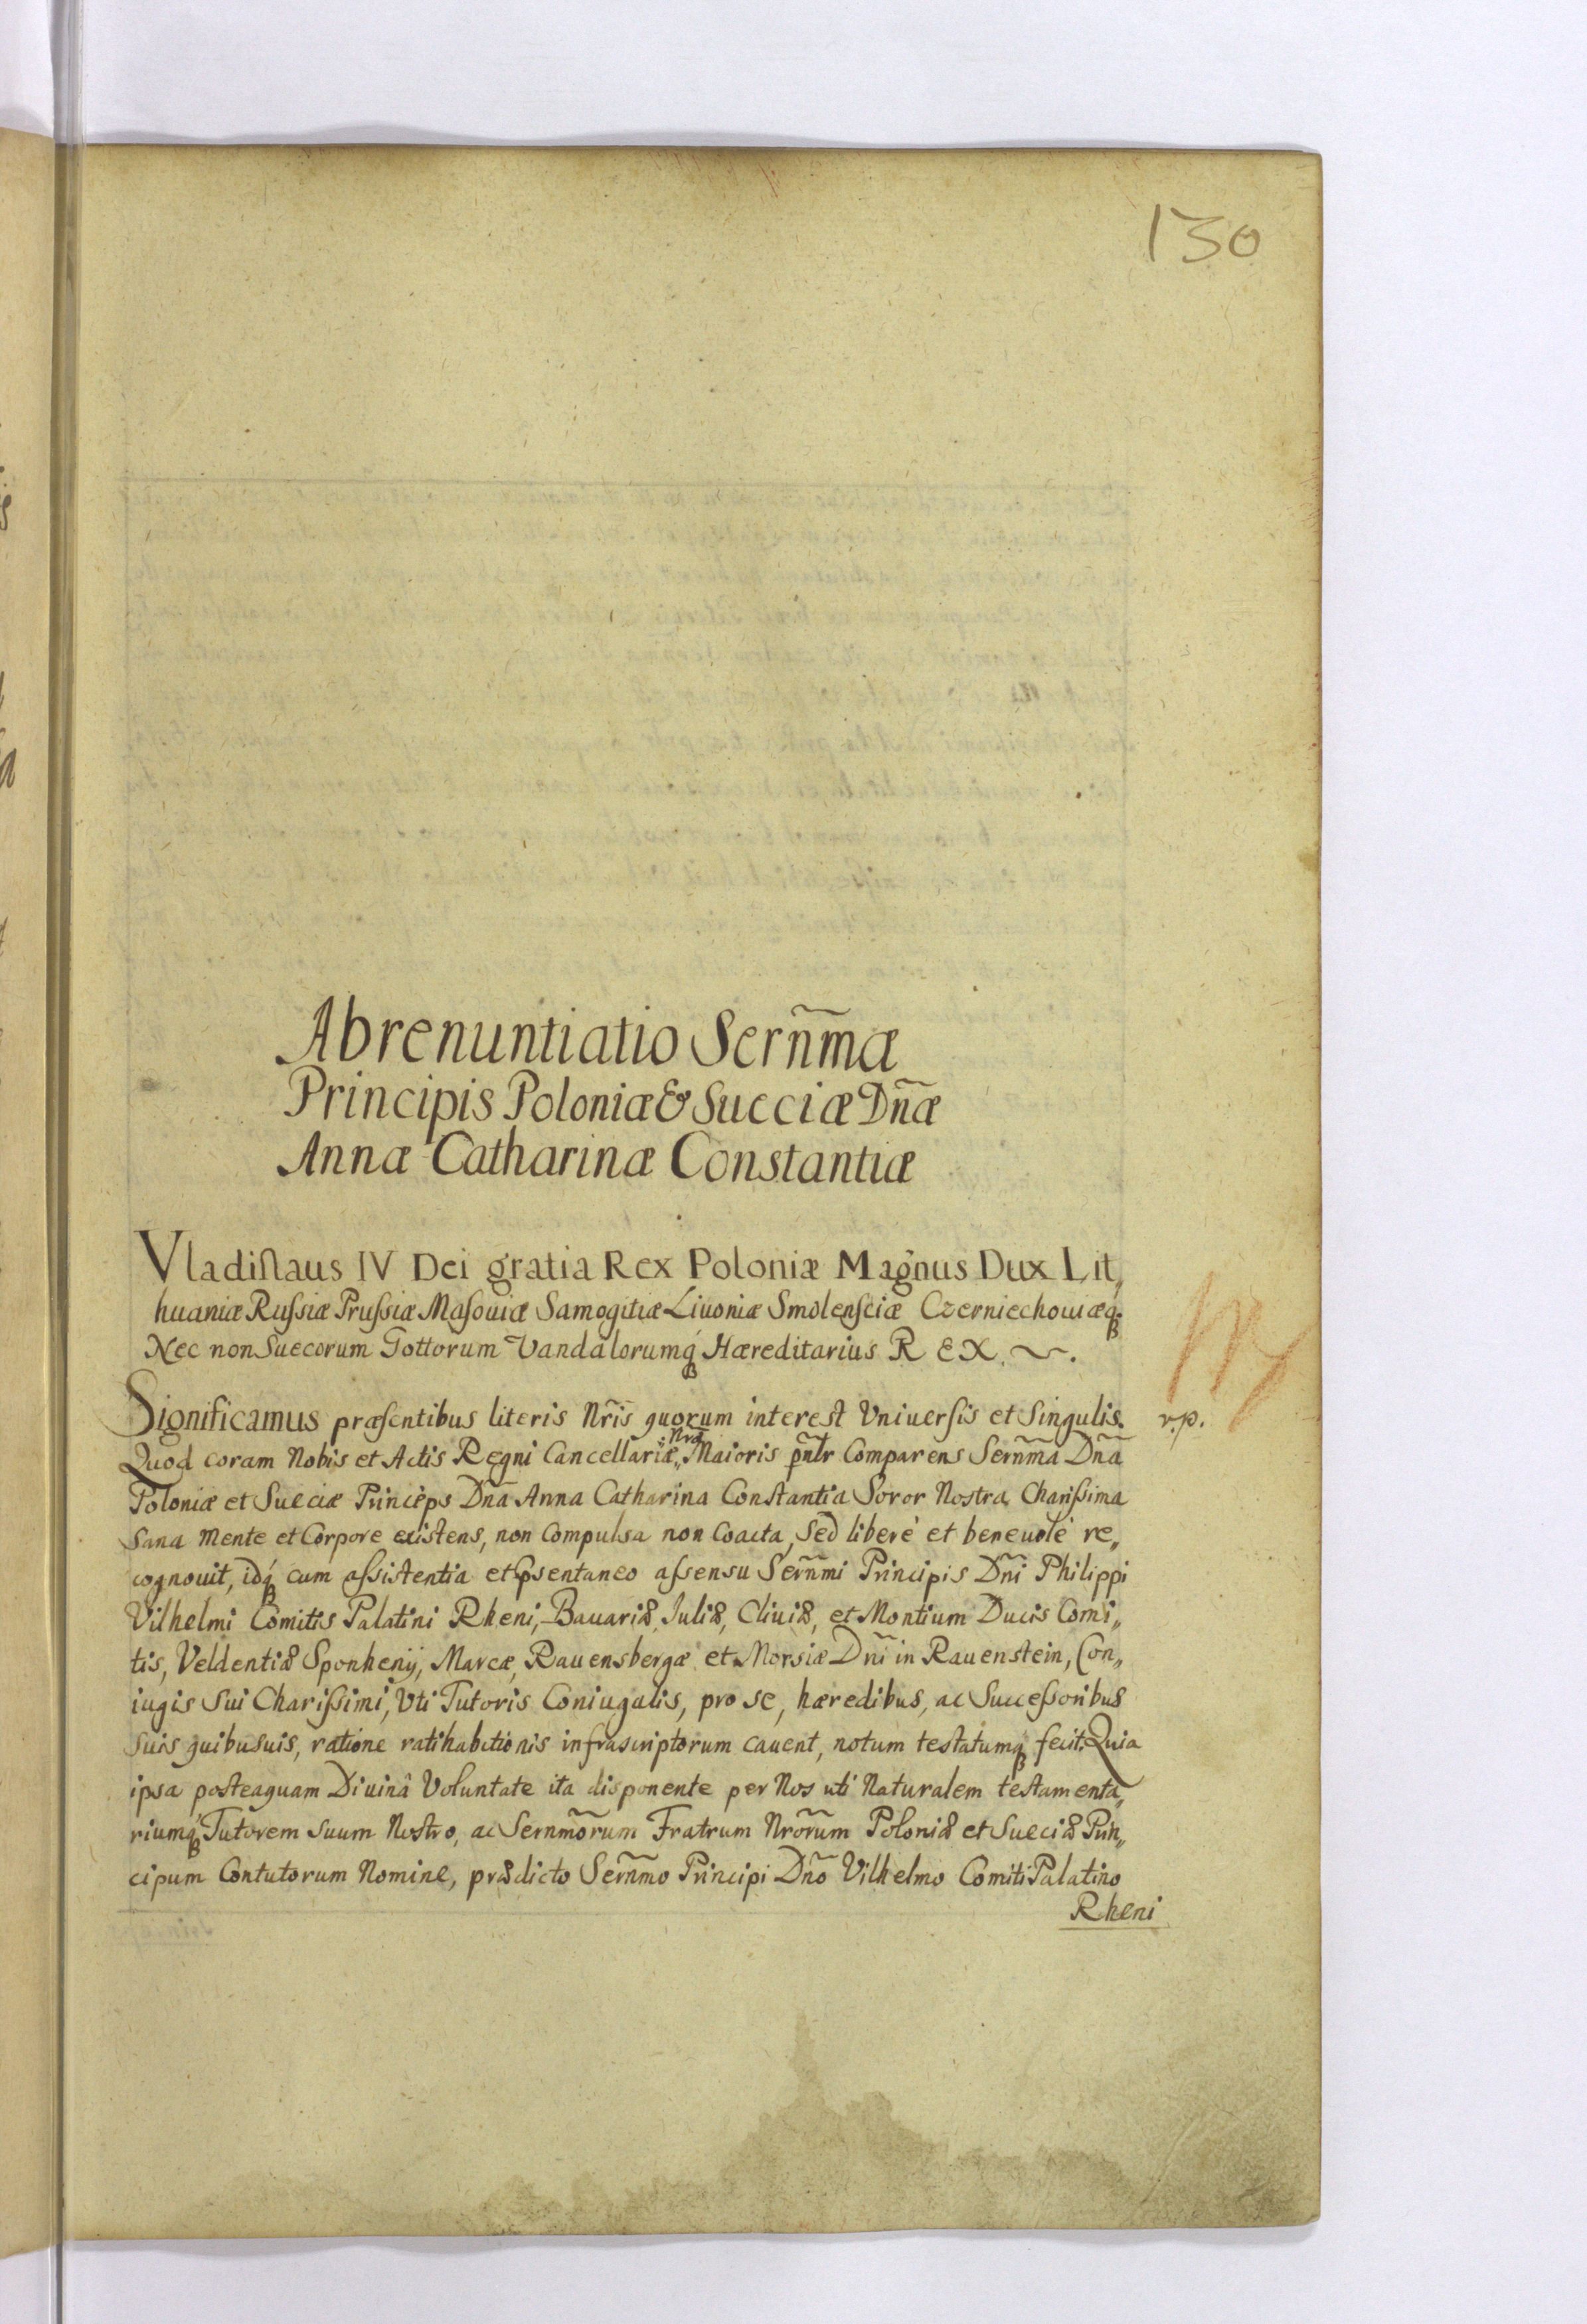 130
Abrenuntiatio Serñmæ
Principis Poloniæ & Sueciæ Dñæ
Annæ Catharinæ Constantiæ
Vladislaus IV Dei gratia Rex Poloniæ Magnus Dux Lit„
huaniæ Rußiæ Prußiæ Masouiæ Samogitiæ Liuoniæ Smolensciæ Czerniechouiæq́
Nec non Suecorum Gottorum Vandalorumq́ Hæreditarius REX.
Significamus præsentibus literis Nr̃is quorum interest Vniuersis et Singulis. v.p.
Quod coram Nobis et Actis Regni Cancellariæ„ Nræ Maioris pñtr Comparens Serñma Dña
Poloniæ et Sueciæ Princeps Dña Anna Catharina Constantia Soror Nostra Charißima
Sana mente et Corpore existens, non Compulsa non Coacta, Sed liberè et beneuolè re„
cognouit, idq́ cum aßistentia et Psentaneo assensu Serñmi Principis Dñi Philippi
Vilhelmi Comitis Palatini Rheni, Bauariæ, Iuliæ, Cliuiæ, et Montium Ducis Comi„
tis, Veldentiæ Sponhenÿ, Marcæ, Rauensbergæ et Morsiæ Dñi in Rauenstein, Con„
iugis Sui Charißimi, Vti Tutoris Coniugalis, pro se, hæredibus, ac Succeßoribus
Suis quibusuis, ratione ratihabitionis infrascriptorum cauent, notum testatumq́ fecit. Quia
ipsa posteaquam Diuinâ Voluntate ita disponente per Nos uti Naturalem testamenta„
riumq́ Tutorem Suum Nostro, ac Serñmorum Fratrum Nrõrum Poloniæ et Sueciæ Prin„
cipum Contutorum Nomine, prædicto Serñmo Principi Dño Vilhelmo Comiti Palatino
Rheni